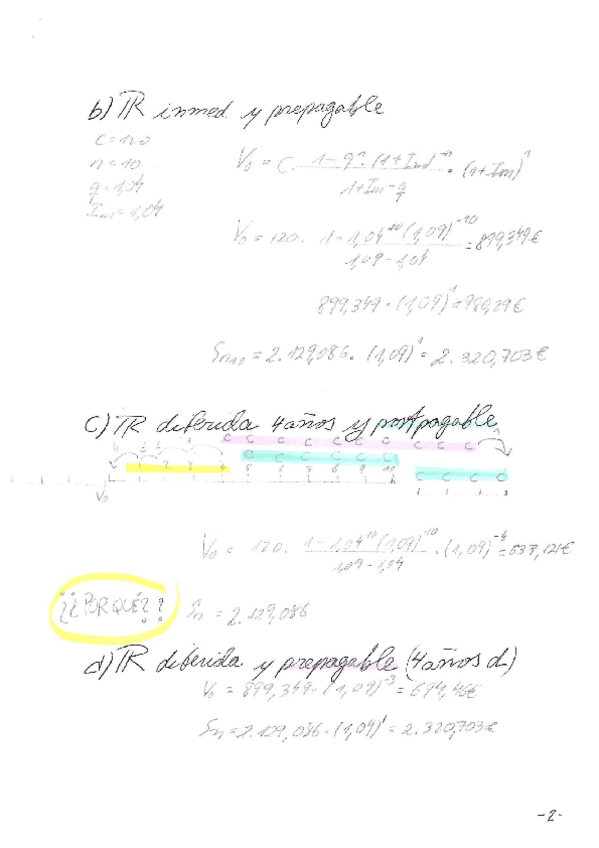 b) TR inmed y prepagable
C = 120
n = 10
q = 1,04
Im = 1,04
V₀ = C · 1 - qⁿ · (1+Im)⁻ⁿ / 1+Im - q · (1+Im)¹
V₀ = 120 · 1 - 1,04¹⁰ (1,09)⁻¹⁰ / 1,09 - 1,04 = 899,349€
899,349 · (1,09)¹ = 980,29€
= 2.129,086 · (1,09)¹ = 2.320,703€
C) TR diferida 4 años y postpagable
C C C C C C C C C C
C C C C C C C C C C
1 2 3 4 5 6 7 8 9 10
V₀
V₀ = 120 · 1 - 1,04¹⁰ (1,09)⁻¹⁰ / 1,09 - 1,04 · (1,09)⁻⁴ = 637,121€
¿¿POR QUÉ??
Sn = 2.129,086
d) TR diferida y prepagable (4 años d)
V₀ = 899,349 · (1,09)⁻³ = 694,46€
Sn = 2.129,086 · (1,09)¹ = 2.320,703€
-2-